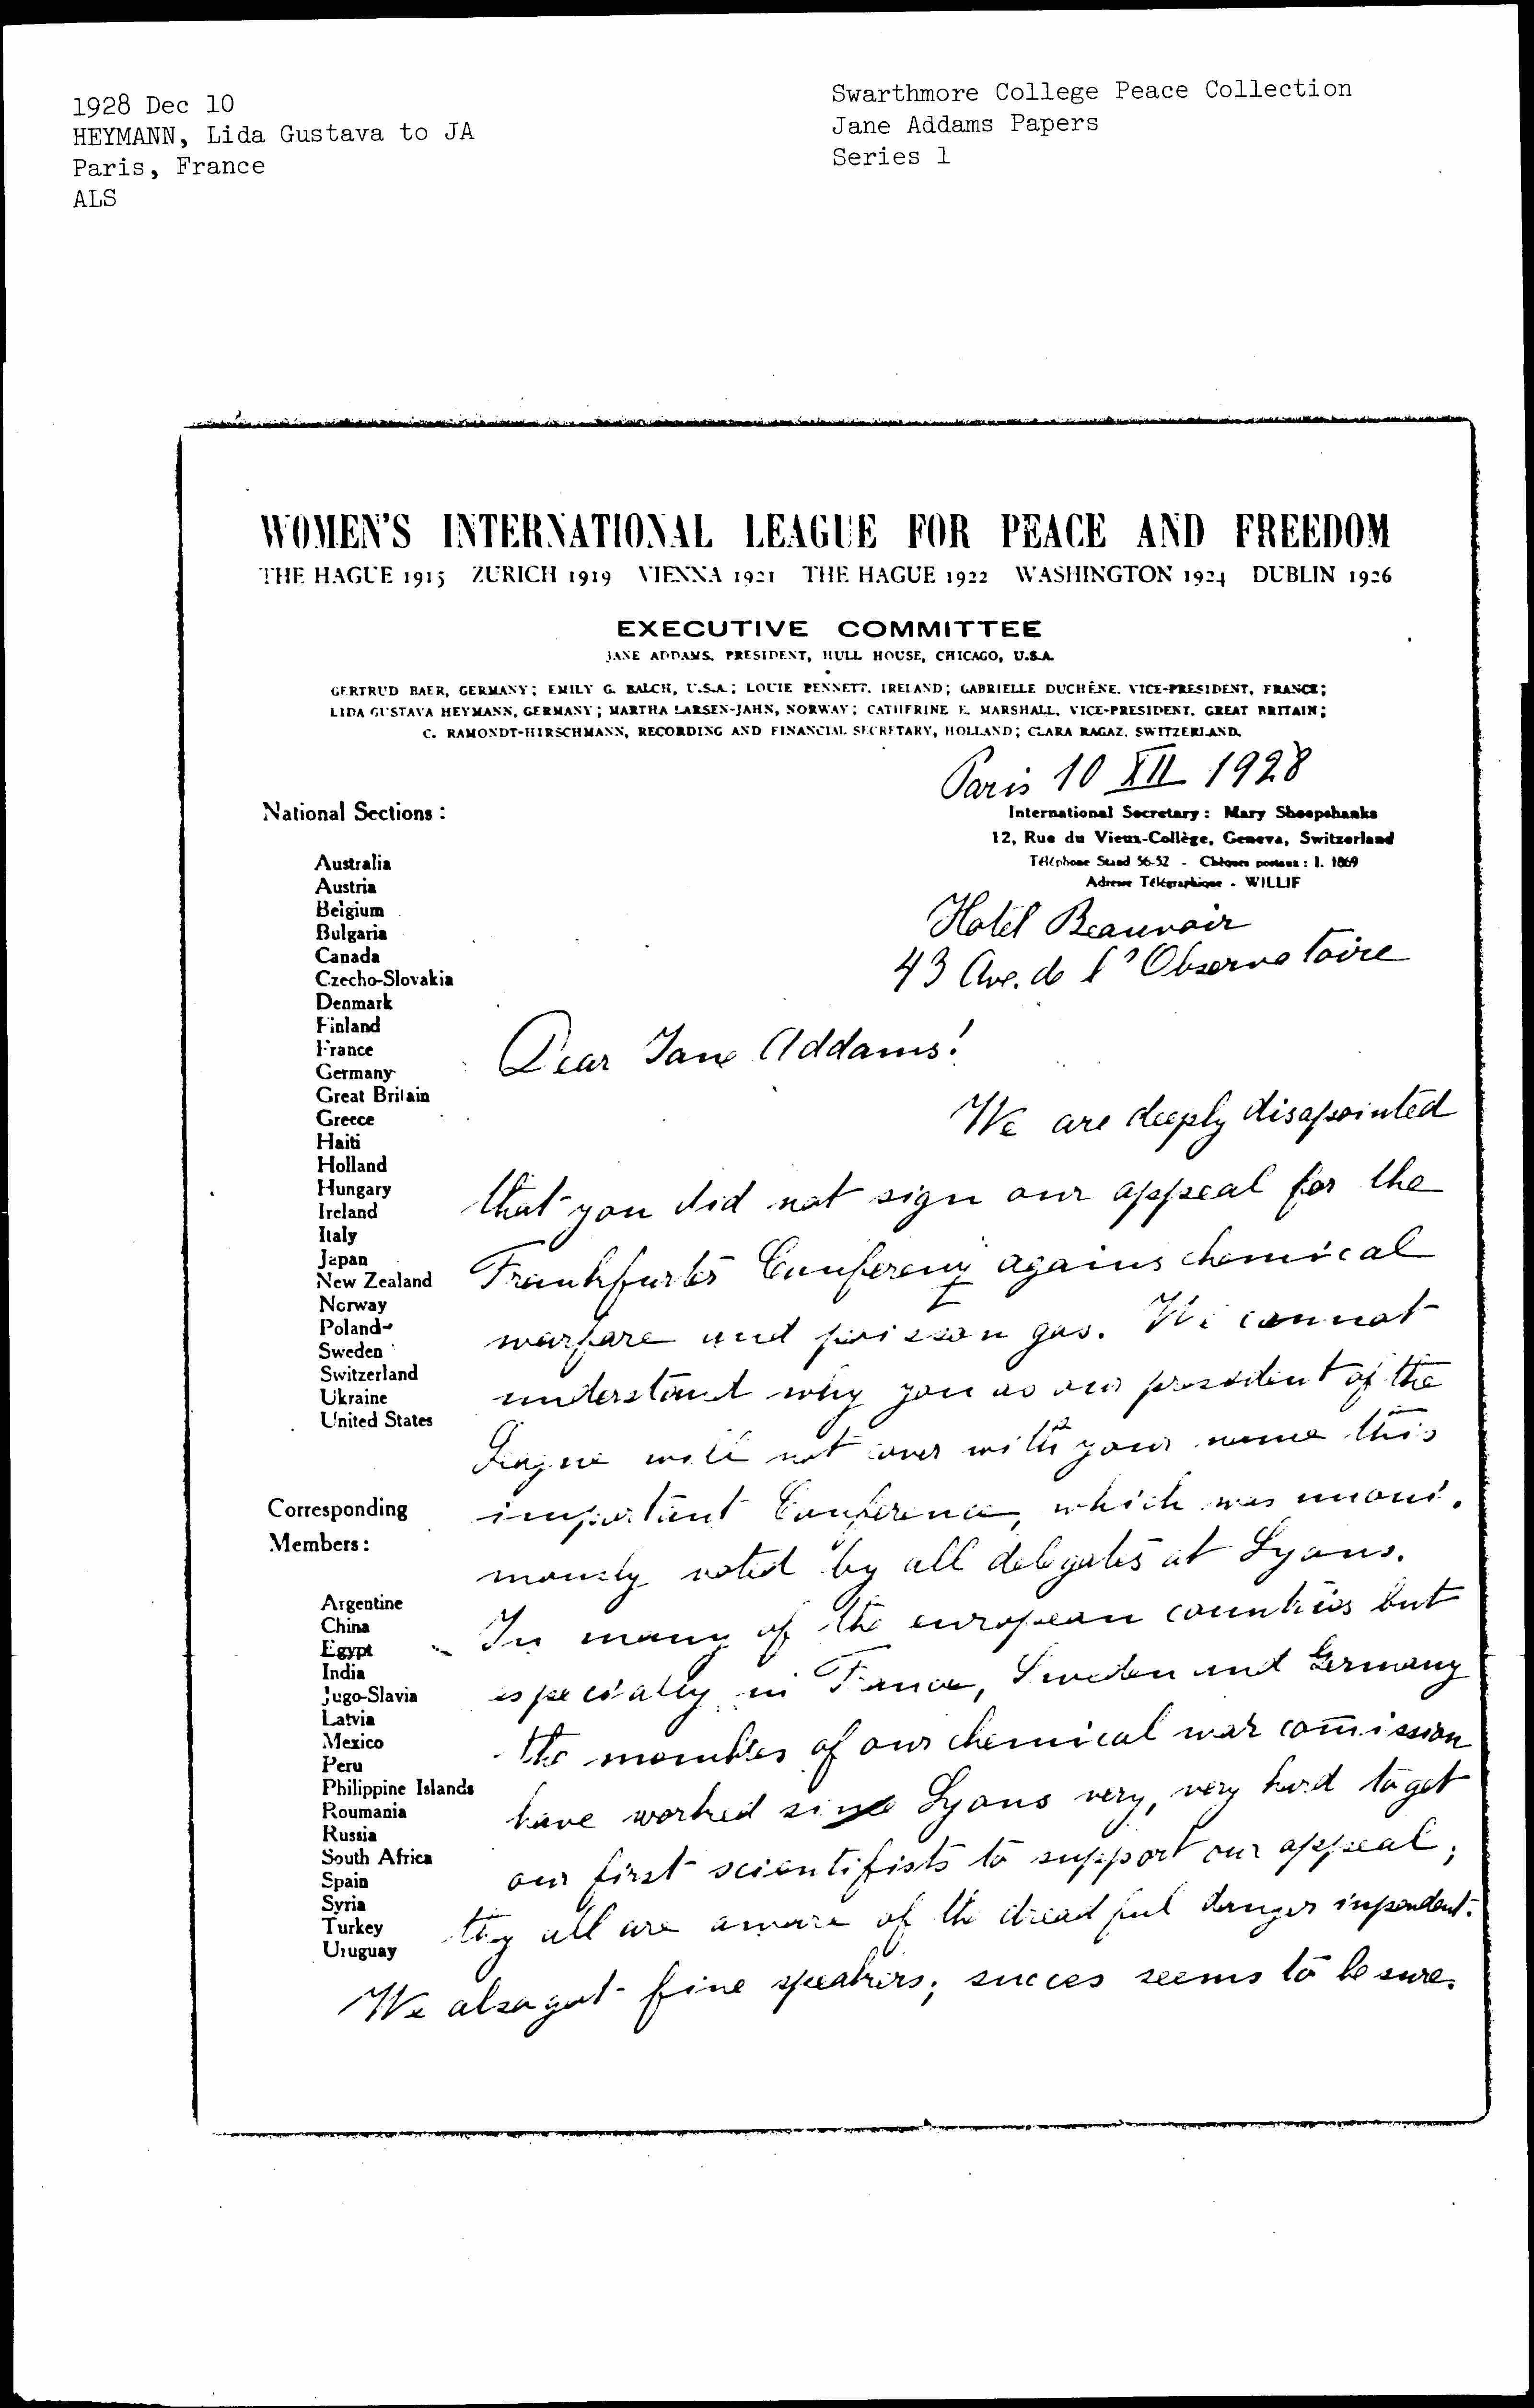 1928 Dec 10
HEYMANN, Lida Gustava to JA
Paris, France
ALS
Swarthmore College Peace Collection
Jane Addams Papers
Series 1
WOMEN'S INTERNATIONAL LEAGUE FOR PEACE AND FREEDOM
THE HAGUE 1915 ZURICH 1919 VIENNA 1921 THE HAGUE 1922 WASHINGTON 1924 DUBLIN 1926
EXECUTIVE COMMITTEE
JANE ADDAMS, PRESIDENT, HULL HOUSE, CHICAGO, U.S.A.
GERTRUD BAER, GERMANY; EMILY G. BALCH, U.S.A.; LOUIE BENNETT, IRELAND; GABRIELLE DUCHÊNE, VICE-PRESIDENT, FRANCE;
LIDA GUSTAVA HEYMANN, GERMANY; MARTHA LARSEN-JAHN, NORWAY; CATHERINE E. MARSHALL, VICE-PRESIDENT, GREAT BRITAIN;
C. RAMONDT-HIRSCHMANN, RECORDING AND FINANCIAL SECRETARY, HOLLAND; CLARA RAGAZ, SWITZERLAND.
Paris 10 XII 1928
International Secretary: Mary Sheepshanks
12, Rue du Vieux-Collège, Geneva, Switzerland
Téléphone Stand 56-52 - Chèques postaux: I. 1869
Adresse Télégraphique - WILLIF
Hotel Beauvoir
43 Ave. de l'Observatoire
National Sections:
Australia
Austria
Belgium
Bulgaria
Canada
Czecho-Slovakia
Denmark
Finland
France
Germany
Great Britain
Greece
Haiti
Holland
Hungary
Ireland
Italy
Japan
New Zealand
Norway
Poland
Sweden
Switzerland
Ukraine
United States
Corresponding
Members:
Argentine
China
Egypt
India
Jugo-Slavia
Latvia
Mexico
Peru
Philippine Islands
Roumania
Russia
South Africa
Spain
Syria
Turkey
Uruguay
Dear Jane Addams!
We are deeply disapointed
that you did not sign our appeal for the
Frankfurter agains chemical
warfare and poisson gas. We cannot
understand why you as our president of the
League will not cover with your name this
important Conference, which was unani-
mously voted by all delegates at Lyons.
In many of the european countries but
especially in France, Sweden and Germany
the membres of our chemical war comission
have worked since Lyons very, very hard to get
our first scientifists to support our appeal;
they all are aware of the dreadful danger inpendent.
We also got fine speakers; succes seems to be sure.